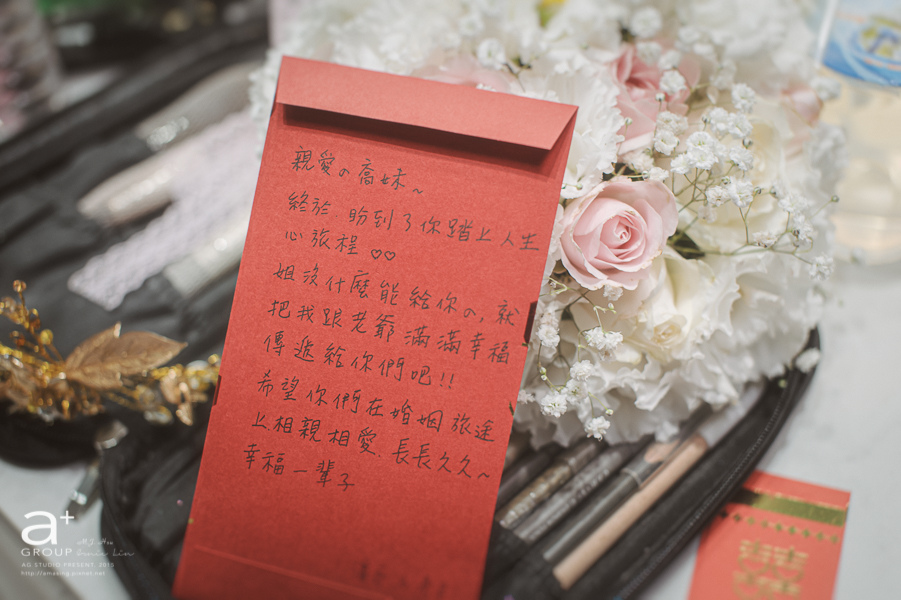 親愛の喬妹~
終於.盼到了你踏上人生
心旅程♡♡
姐沒什麼能給你の,就
把我跟老爺滿滿幸福
傳遞給你們吧!!
希望你們在婚姻旅途
上相親相愛.長長久久~
幸福一輩子
a+
GROUP
AG STUDIO PRESENT. 2015